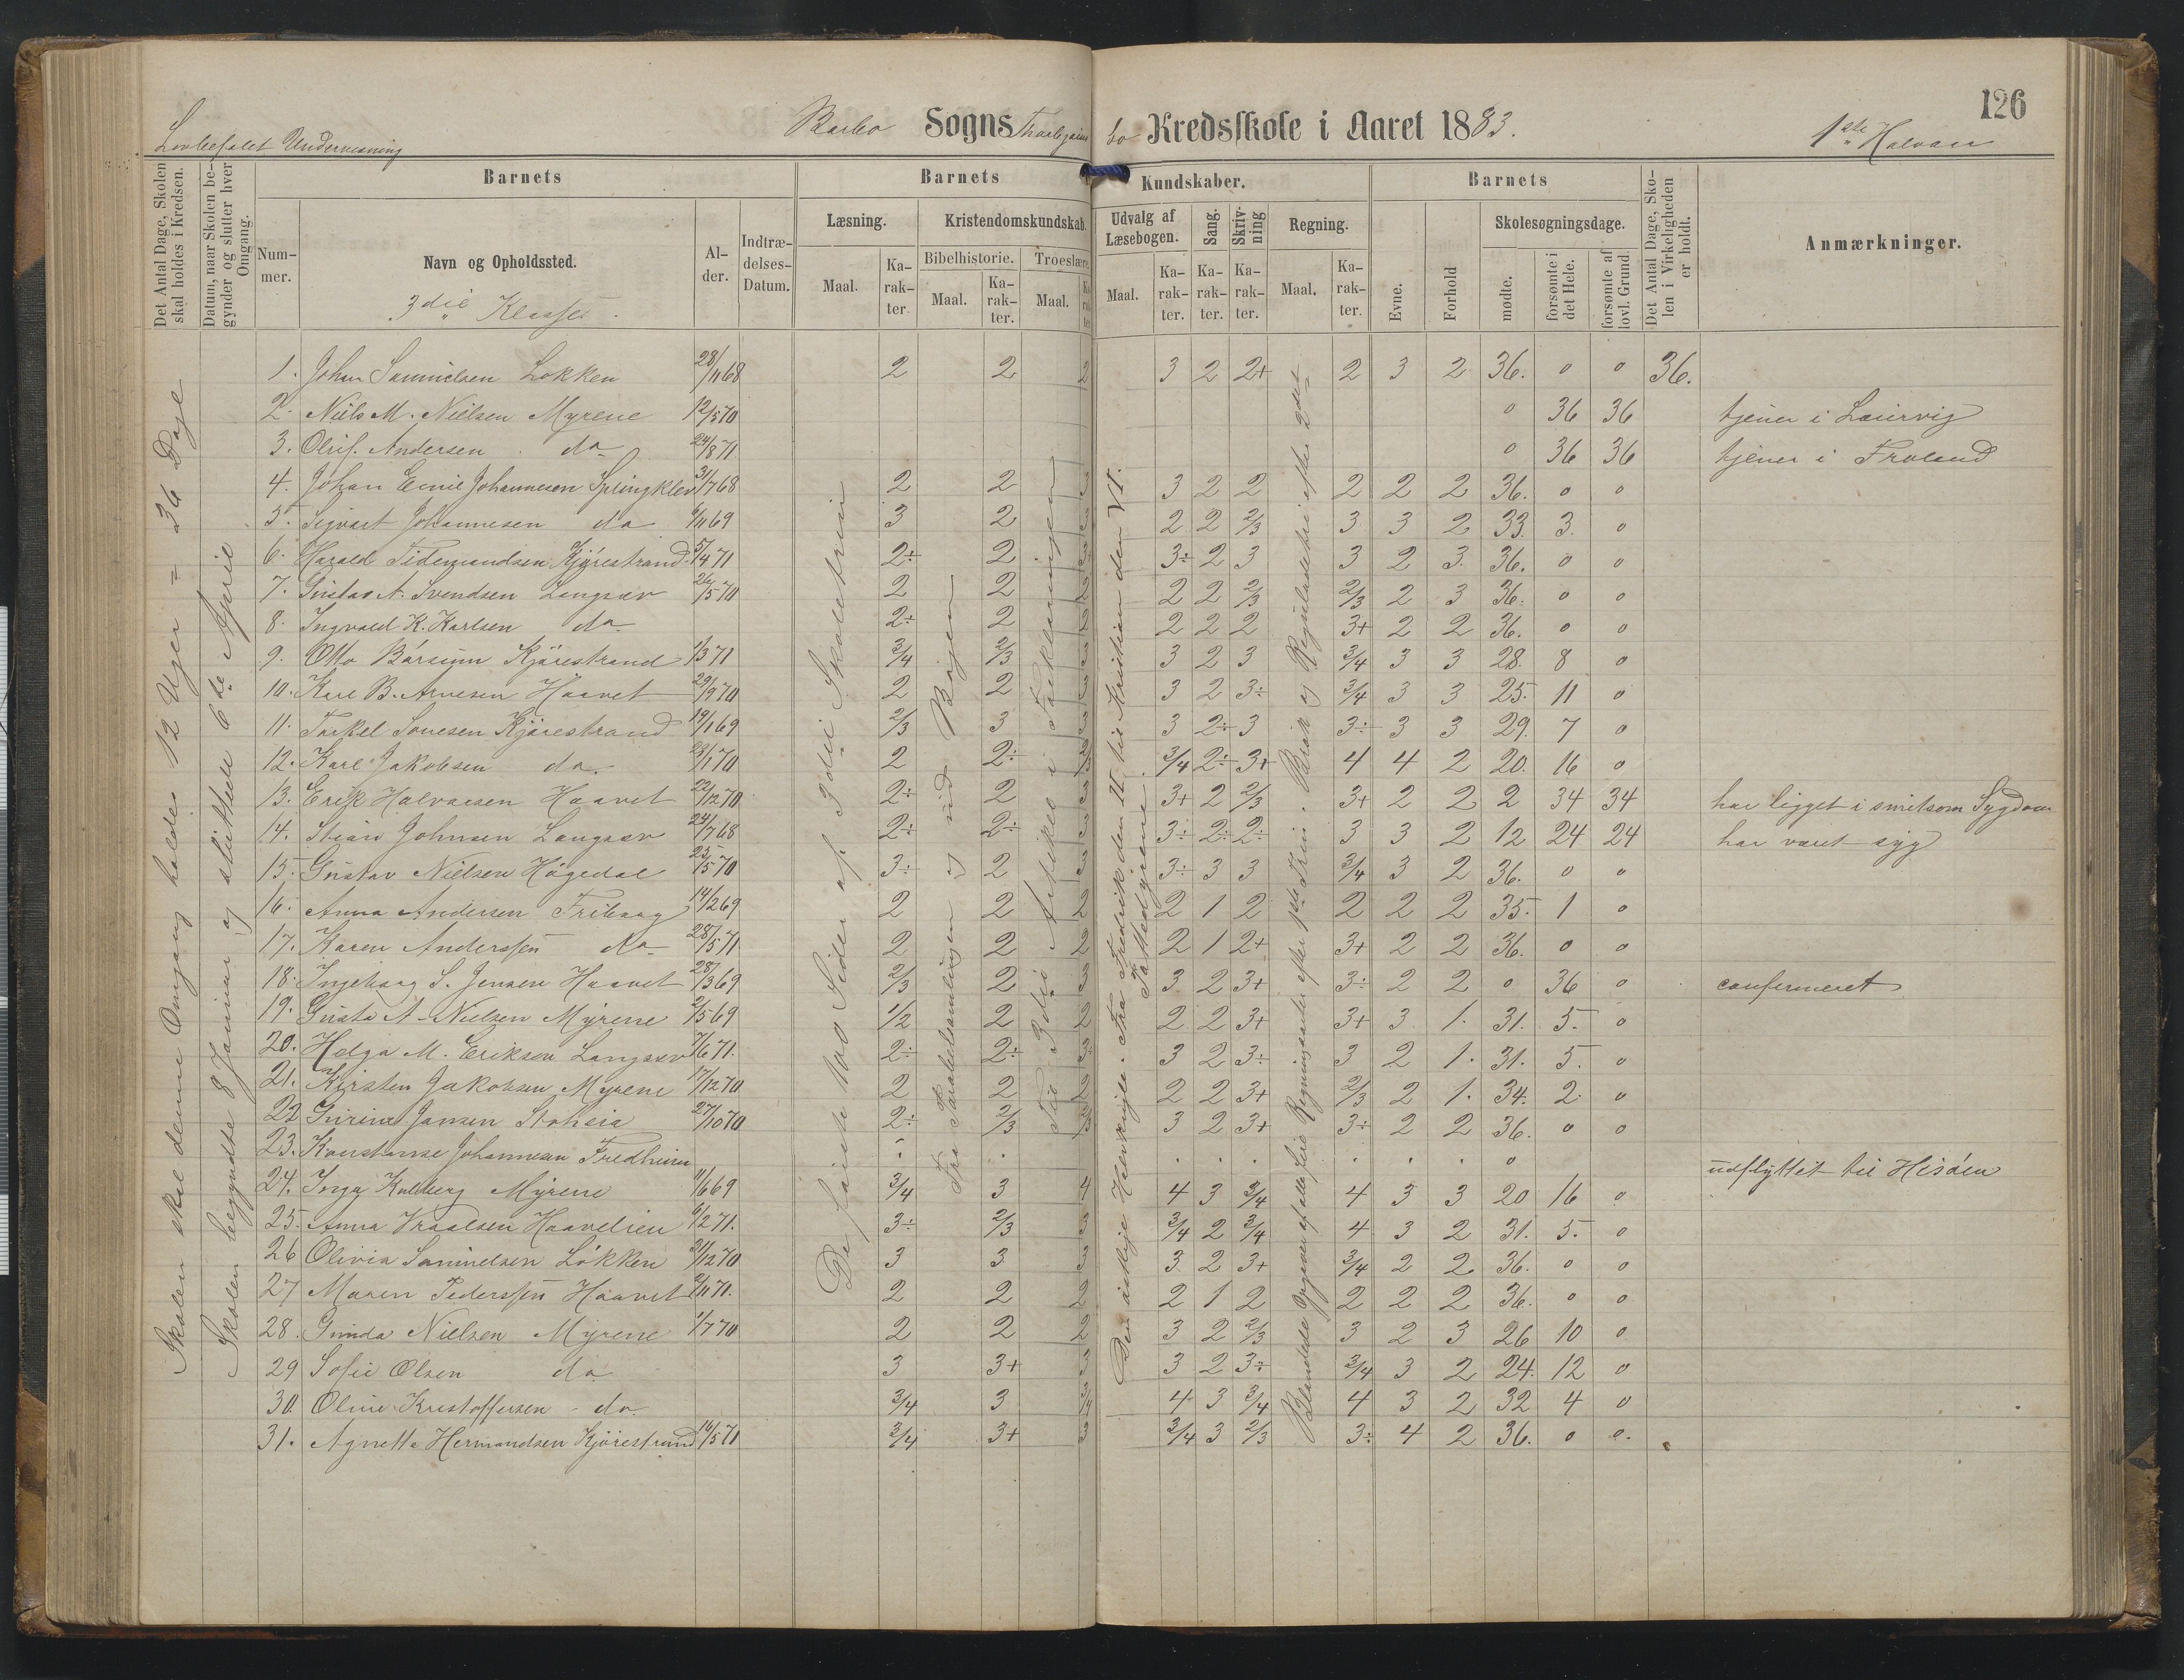 126
Lovbefalet Undervisning
Barbo Sogns Kredsskole i Aaret 1883.
1ste Halvaar
Det Antal Dage, Skolen skal holdes i Kredsen.
Datum, naar Skolen begynder og slutter hver Omgang.
Barnets
Barnets
Kundskaber.
Barnets
Det Antal Dage, Skolen i Virkeligheden er holdt.
Anmærkninger.
Nummer.
Navn og Opholdssted.
Alder.
Indtrædelses-Datum.
Læsning.
Kristendomskundskab.
Udvalg af Læsebogen.
Sang.
Skrivning
Regning.
Evne.
Forhold
Skolesøgningsdage.
Bibelhistorie.
Troeslære.
Maal.
Karakter.
Maal.
Karakter.
Maal.
Karakter
Maal.
Karakter.
Karakter.
Karakter.
Maal.
Karakter.
mødte.
forsømte i det Hele.
forsømte af lovl. Grund.
3die Klasse.
Skolen skal denne Omgang holdes 12 Uger = 36 Dage
Skolen begyndte 8 Januar og sluttede 6te April
De første 100 Sider af 3die Skoletrin
Fra og ud Bogen
Til 3die Artikel i Forklaringen
Fra Fredrik den II til Kristian den VI.
Pattedyrene
1. Johan Samuelsen Løkken 28/11 68 2 2 2 3 2 2+ 2 3 2 36. 0 0 36.
2. Niels M. Nielsen Myrene 12/5 70 0 36 36 tjener i Laurvig
3. Oluf Andersen do 24/8 71 0 36 36 tjener i Froland
4. Johan Emil Johannesen Springklev 31/7 68 2 2 3 2 2 2 2 2 36. 0 0
5. Sigvart Johannesen do 11 69 3 2 2 2 2/3 3 3 2 33. 3. 0
6. Harald Tidemandsen Kjørestrand 5/4 71 2÷ 2 3÷ 2 3 3 2 3. 36. 0 0
7. Gustav A. Svendsen Langsæv 26/5 70 2 2 2 2 2/3 2/3 2 3 36. 0 0
8. Ingvald K. Karlsen do 2÷ 2 2 2 2 3+ 2 2 36. 0 0
9. Otto Børsum Kjørestrand 1/3 71 3/4 2/3 3 2 3 3/4 3 3 28. 8 0
10. Karl B. Arnesen Haavet 29/9 70 2 2 3 2 3÷ 3/4 3 3 25. 11 0
11. Torkel Kjørestrand 19/1 69 2/3 3 3 2÷ 3 3÷ 3 3 29. 7 0
12. Karl Jakobsen do. 23/1 70 2 2÷ 3/4 2÷ 3+ 4 4 2 20. 16 0
13. Erik Halvorsen Haavet 22/12 70 2÷ 2 3 3+ 2 2/3 3+ 2 2 2 34 34 har ligget i smitsom Sygdom
14. Stian Johnsen Langsæv 24/7 68 2÷ 2÷ 3 3÷ 2÷ 2÷ 3 3 2 12 24 24 har været syg
15. Gustav Nielsen Høgedal 25/5 70 3÷ 2 3 3÷ 3 3 3/4 3 2 36. 0 0
16. Anna Andersen Friborg 14/2 69 2 2 2 2 1 2 2 2 2 35. 1 0
17. Karen Anderssen do 28/5 71 2 2 2 2 1 2+ 3+ 2 2 36. 0 0
18. Ingeborg S. Jensen Haavet 28/3 69 2/3 2 3 3 2 3+ 3÷ 2 2 0 36 0 confirmeret
19. Gusta A. Nielsen Myrene 2/5 69 1/2 2 2 2 2 3+ 3+ 3 1. 31. 5. 0
20. Helga M. Eriksen Langsæv 7/6 71. 2÷ 2÷ 3 3 2 3÷ 3 2 1. 31. 5. 0
21. Kirsten Jakobsen Myrene 17/12 70 2 2 2 2 2 3+ 2/3 2 1. 34. 2. 0
22 Jansen Stoheia 27/10 70 2÷ 2/3 3 2 3+ 3÷ 2 2 36. 0 0
23. Konstanse Johannesen Fredheim 0 udflyttet til Hisøen
24. Inga Kulberg Myrene 11/6 69 3/4 3 4 4 3 3/4 4 3 3 20 16 0
25. Anna Vraalsen Haavelien 2 71. 3÷ 2/3 3 3/4 2 3/4 4 3 2 31. 5. 0
26 Olivia Samuelsen Løkken 31/12 70 3 3 3 3 2 3+ 3/4 2 2 36. 0 0
27 Maren Pederssen Haavet 11 71. 2 2 2 2 1 2 2 2 2 36. 0 0
28. Gunda Nielsen Myrene 1/7 70 2 2 2 3 2 2/3 3 2 3 26 10 0
29 Sofie Olsen do 3 3+ 3 3 2 3÷ 3/4 3 2 24. 12 0
30. Oline Kristoffersen do 3/4 3 3/4 4 3 3/4 4 3 2 32 4 0
31. Agnette Hermandsen Kjørestrand 14/5 71 3/4 3+ 3 3/4 3 2/3 3÷ 4 2 36. 0 0.